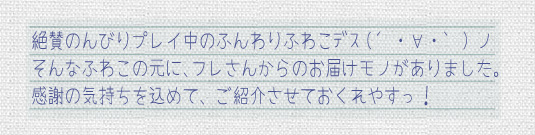 絶賛のんびりプレイ中のふんわりふわこデス(´・∀・｀)ノ
そんなふわこの元に、フレさんからのお届けモノがありました。
感謝の気持ちを込めて、ご紹介させておくれやすっ！